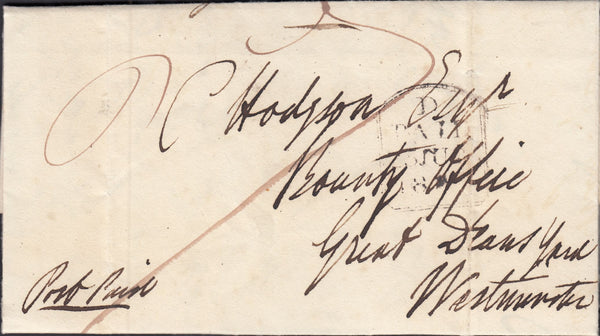 C Hodgson Esqr
Bounty Office
Great Deans Yard
Westminster
Post Paid
D
PAID